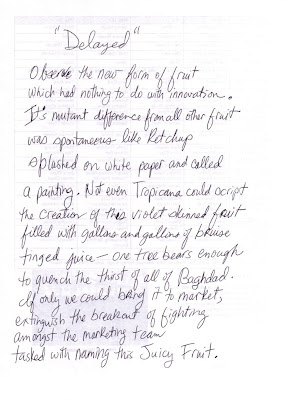 "Delayed"
Observe the new form of fruit
which had nothing to do with innovation.
It's mutant difference from all other fruit
was spontaneous like Ketchup
splashed on white paper and called
a painting. Not even Tropicana could script
the creation of this violet skinned fruit
filled with gallons and gallons of bruise
tinged juice – one tree bears enough
to quench the thirst of all of Baghdad.
If only we could bring it to market,
extinguish the breakout of fighting
amongst the marketing team
tasked with naming this Juicy Fruit.